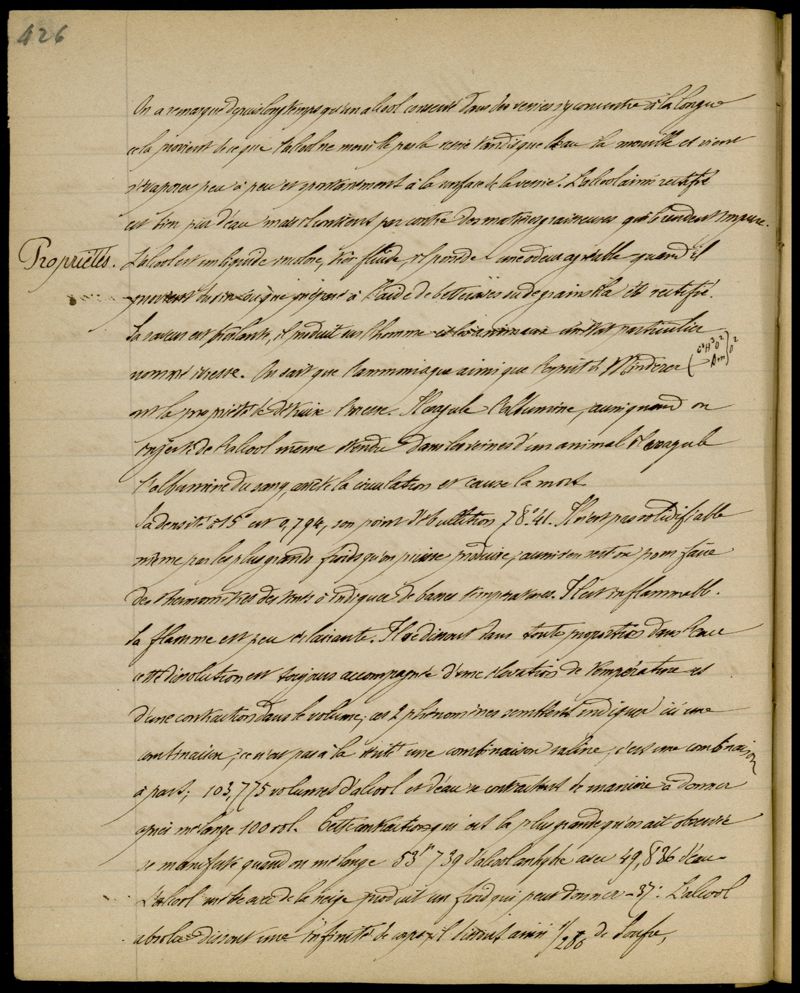 426
On a remarqué depuis longtemps qu'un alcool conservé dans des vessies s'y concentre à la longue
cela provient de ce que l'alcool ne mouille pas la vessie tandis que l'eau la mouille et vient
s'évaporer peu à peu et spontanément à la surface de la vessie. L'alcool ainsi rectifié
est bien pur d'eau mais il contient par contre des matières graisseuses qui le rendent impur.
Propriétés.
L'alcool est un liquide incolore, très fluide, il possède une odeur agréable quand il
provient du vin lorsque préparé à l'aide de betteraves ou de grains il a été rectifié.
Sa saveur est brûlante, il produit sur l'homme et les animaux un état particulier
nommé ivresse. On sait que l'ammoniaque ainsi que l'esprit de Minderer (C⁴H³O³ Am) O²
ont la propriété de détruire l'ivresse. Il coagule l'albumine, aussi quand on
injecte de l'alcool même étendu dans les veines d'un animal il coagule
l'albumine du sang, arrête la circulation et cause la mort.
Sa densité à 15° est 0,794, son point d'ébullition 78°.41. Il n'est pas solidifiable
même par les plus grands froids qu'on puisse produire, aussi s'en sert on pour faire
des thermomètres destinés à indiquer de basses températures. Il est inflammable.
Sa flamme est peu éclairante. Il se dissout dans toute proportion dans l'eau
cette dissolution est toujours accompagnée d'une élévation de température et
d'une contraction dans le volume, ces 2 phénomènes semblent indiquer ici une
combinaison, ce n'est pas à la vérité une combinaison saline, c'est une combinaison
à part; 103,775 volumes d'alcool et d'eau se contractent de manière à donner
après mélange 100 vol. Cette contraction qui est la plus grande qu'on ait observée
se manifeste quand on mélange 53,739 d'alcool anhydre avec 49,836 d'eau
L'alcool mêlé avec de la neige produit un froid qui peut donner -37°. L'alcool
absolu dissout une infinité de corps, il dissout ainsi 1/200 de soufre,